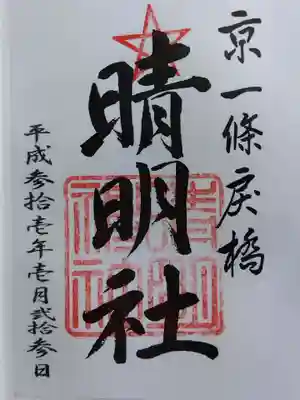 京一條戻橋
晴明社
平成参拾壱年壱月弐拾参日